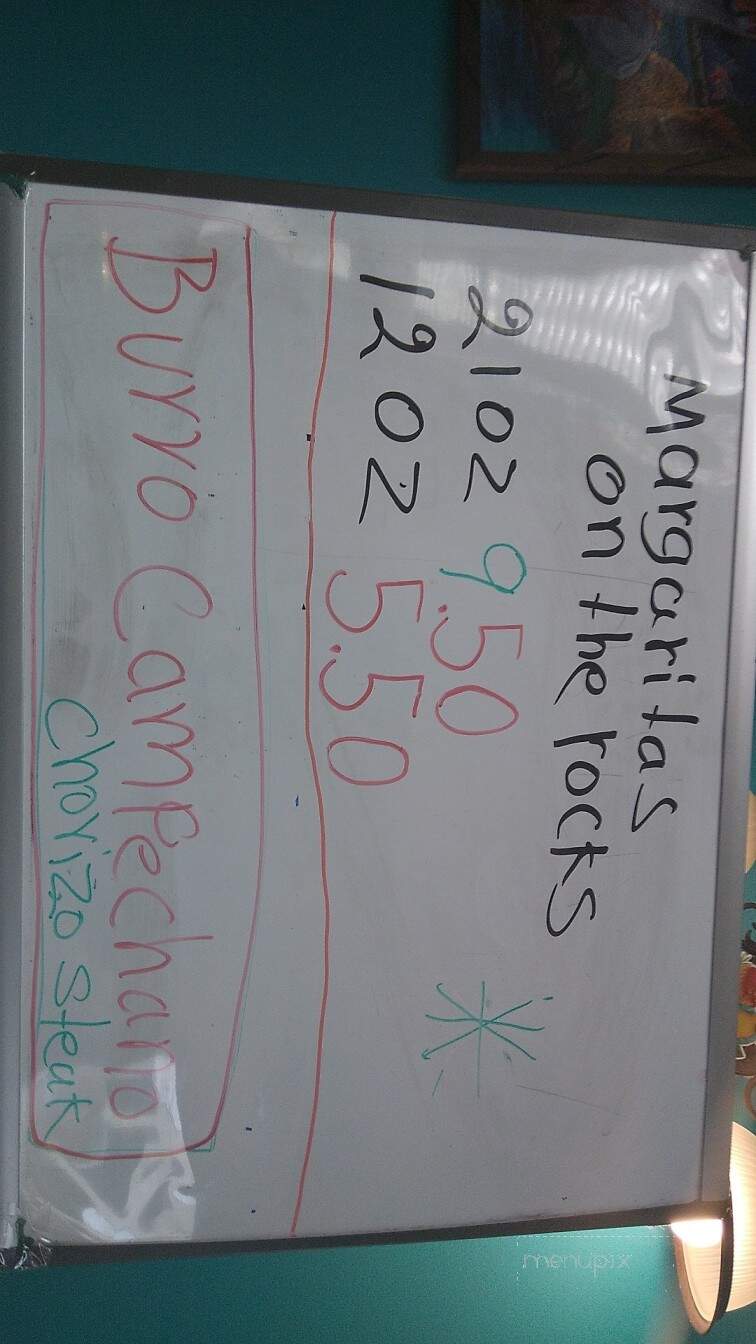 Margaritas
on the rocks
21oz 9.50
12 oz 5.50
Burro Campechano
chorizo steak
menupix